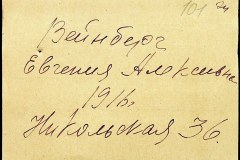 101
Вейнберг
Евгения Алексеевна
1916.
Никольская 36.